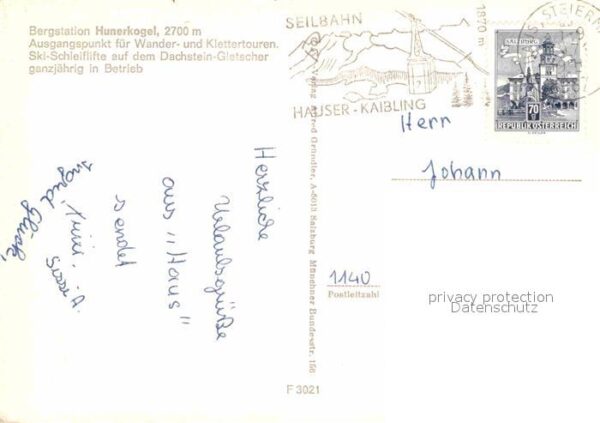 Bergstation Hunerkogel, 2700 m
Ausgangspunkt für Wander- und Klettertouren.
Ski-Schleiflifte auf dem Dachstein-Gletscher
ganzjährig in Betrieb
SEILBAHN
1870 m
HAUSER-KAIBLING
STEIERM
SALZBURG
70
REPUBLIK ÖSTERREICH
Herrn
Johann
1140
Postleitzahl
privacy protection
Datenschutz
Verlag Alfred Gründler, A-5013 Salzburg Münchner Bundesstr. 156
F 3021
Herzliche
Urlaubsgrüße
aus "Haus"
sendet